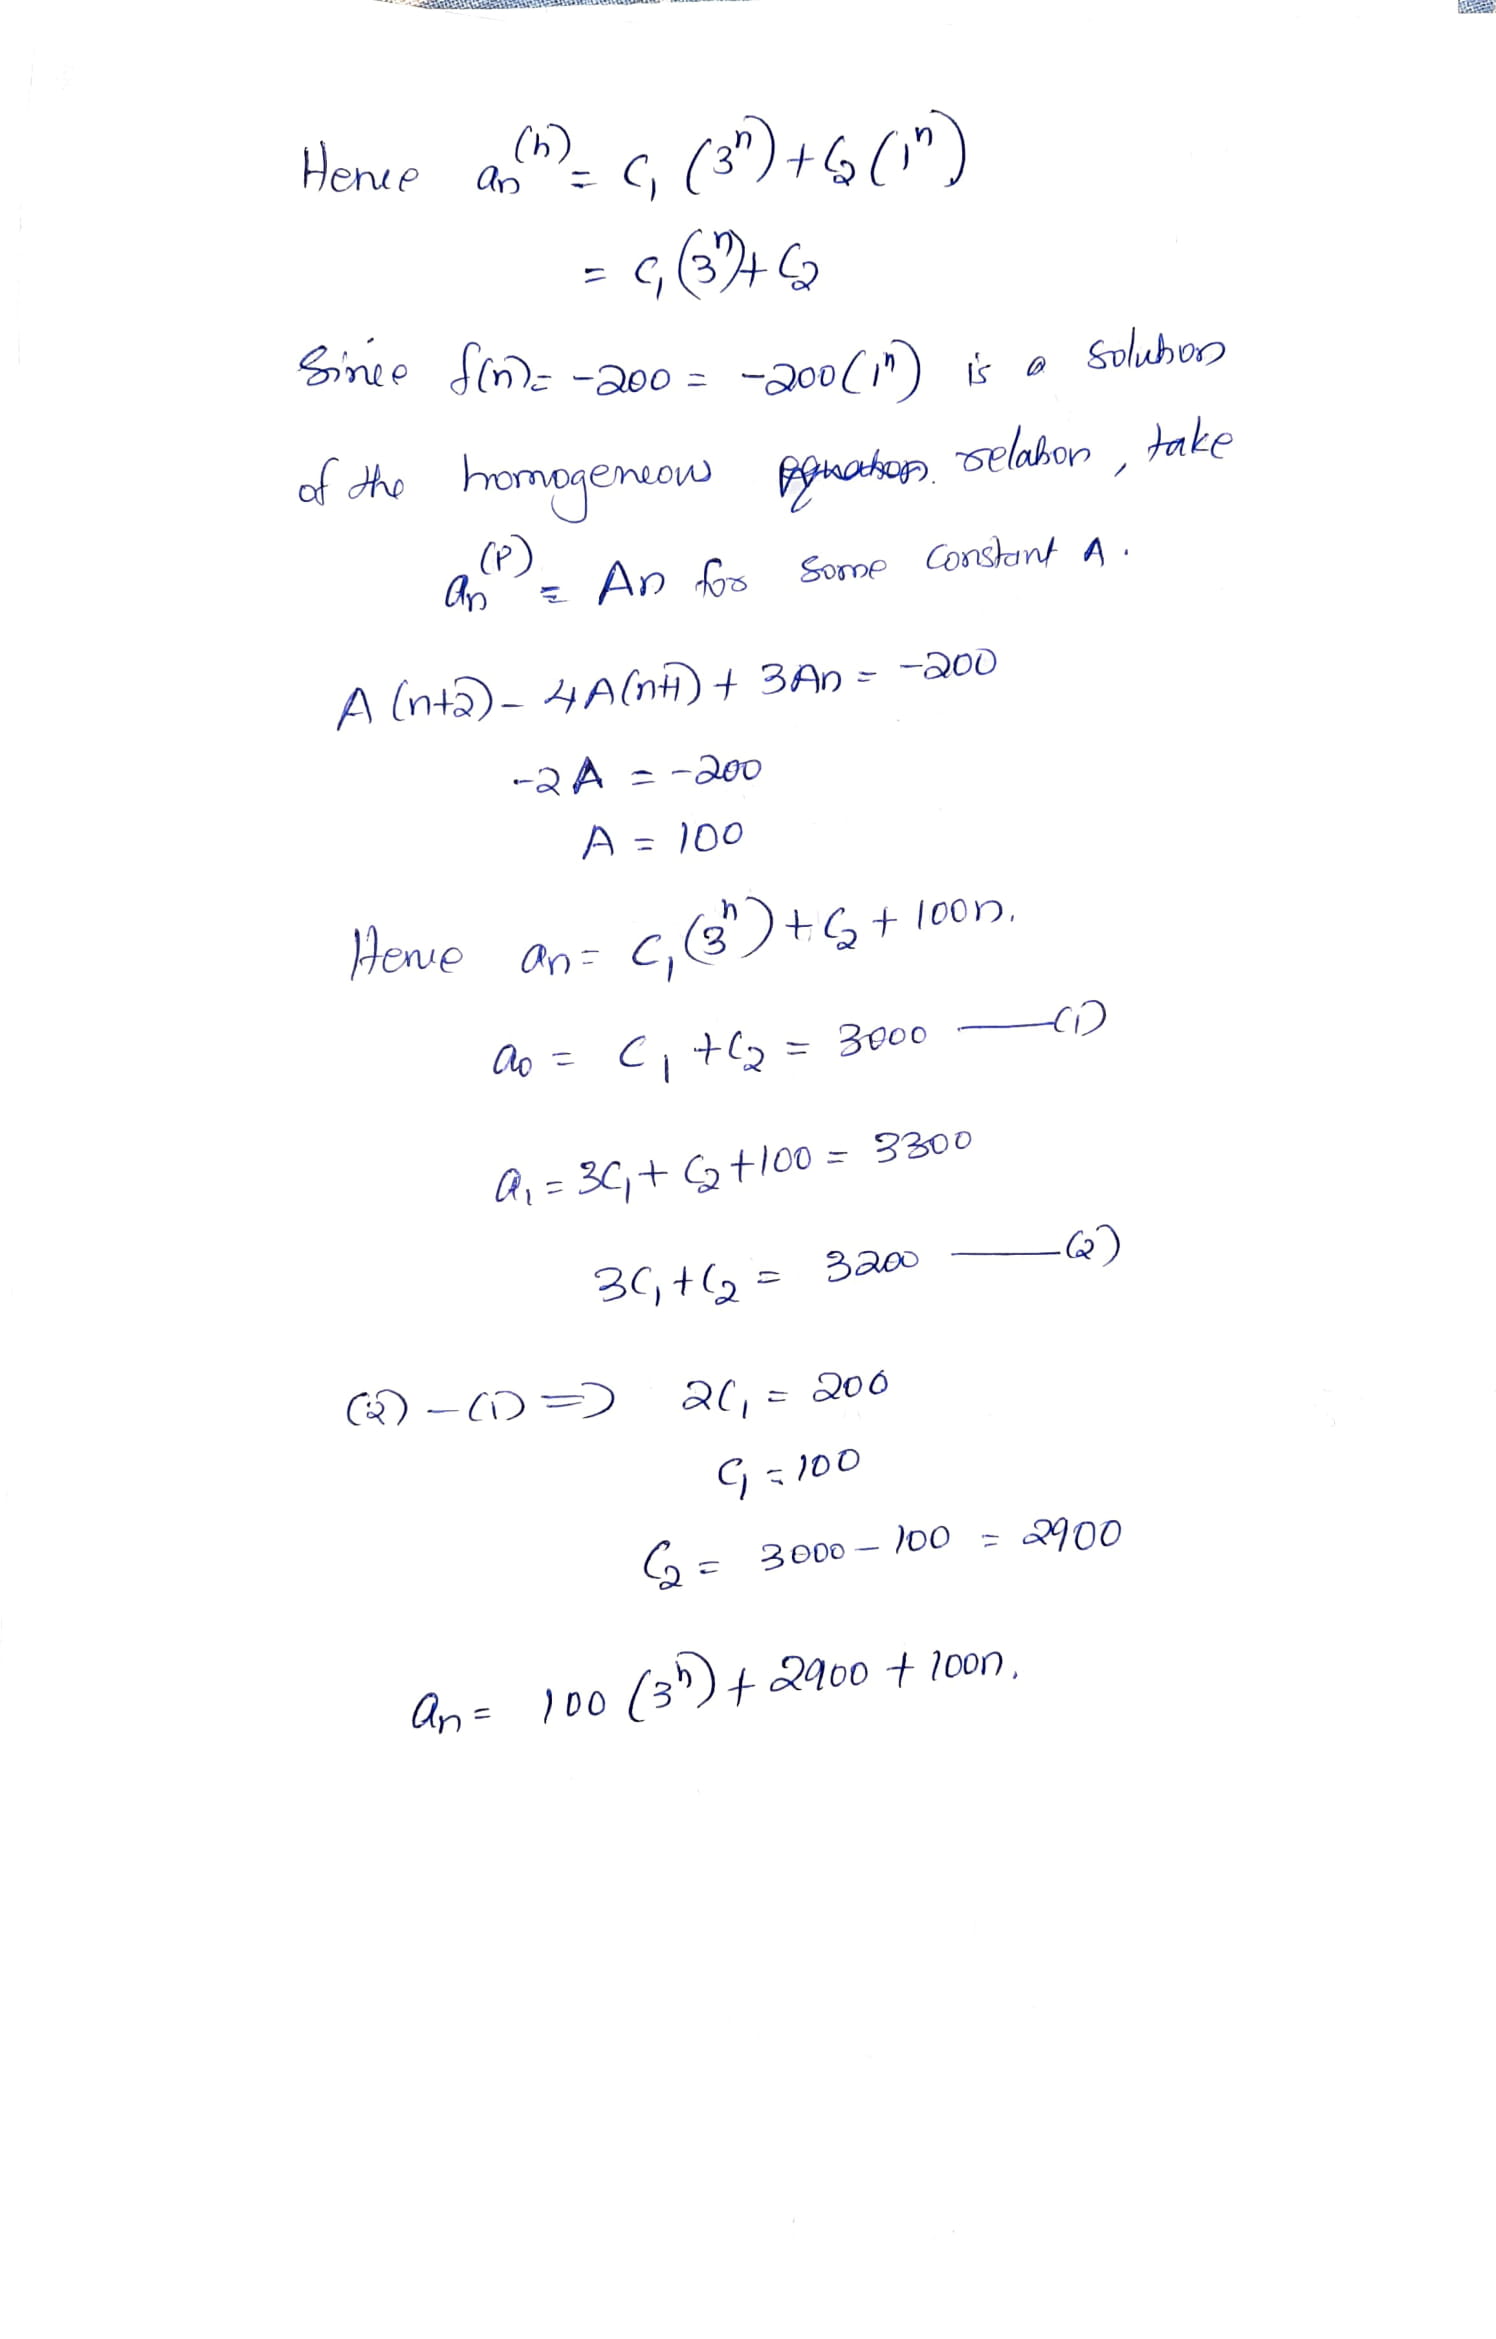 Hence aₙ⁽ʰ⁾ = C₁ (3ⁿ) + C₂ (1ⁿ)
= C₁ (3ⁿ) + C₂
Since f(n) = -200 = -200(1ⁿ) is a solution
of the homogeneous equation. relation, take
aₙ⁽ᴾ⁾ = An for some constant A.
A(n+2) - 4A(n+1) + 3An = -200
-2A = -200
A = 100
Hence aₙ = C₁ (3ⁿ) + C₂ + 100n.
a₀ = C₁ + C₂ = 3000 —(1)
a₁ = 3C₁ + C₂ + 100 = 3300
3C₁ + C₂ = 3200 —(2)
(2) - (1) => 2C₁ = 200
C₁ = 100
C₂ = 3000 - 100 = 2900
aₙ = 100 (3ⁿ) + 2900 + 100n.